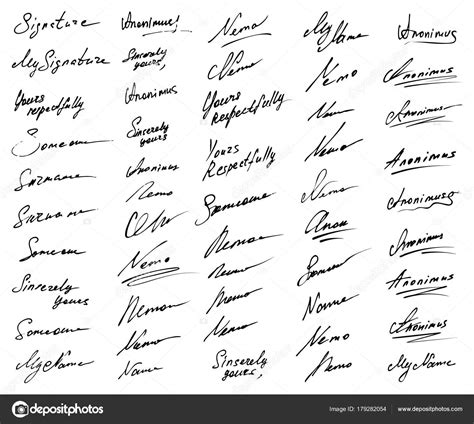 Signature
MySignature
Yours
respectfully
Someone
Surname
Surname
Someone
Sincerely
yours
Someone
MyName
Anonimus!
Sincerely
yours,
Anonimus
Sincerely
yours
Anonimus
Nemo
Nemo
Nemo
Name
Nemo
Nemo
Yours
Respectfully
Yours
Respectfully
Someone
Nemo
Sincerely
yours,
My
Name
Nemo
Name
Nemo
Nemo
Anon
Someone
Name
Nemo
Nemo
Anonimus
Anonimus
Anonimus
Anonimus
Anonimus
Anonimus
Anonimus
Anonimus
MyName
depositphotos
Image ID: 179282054 www.depositphotos.com